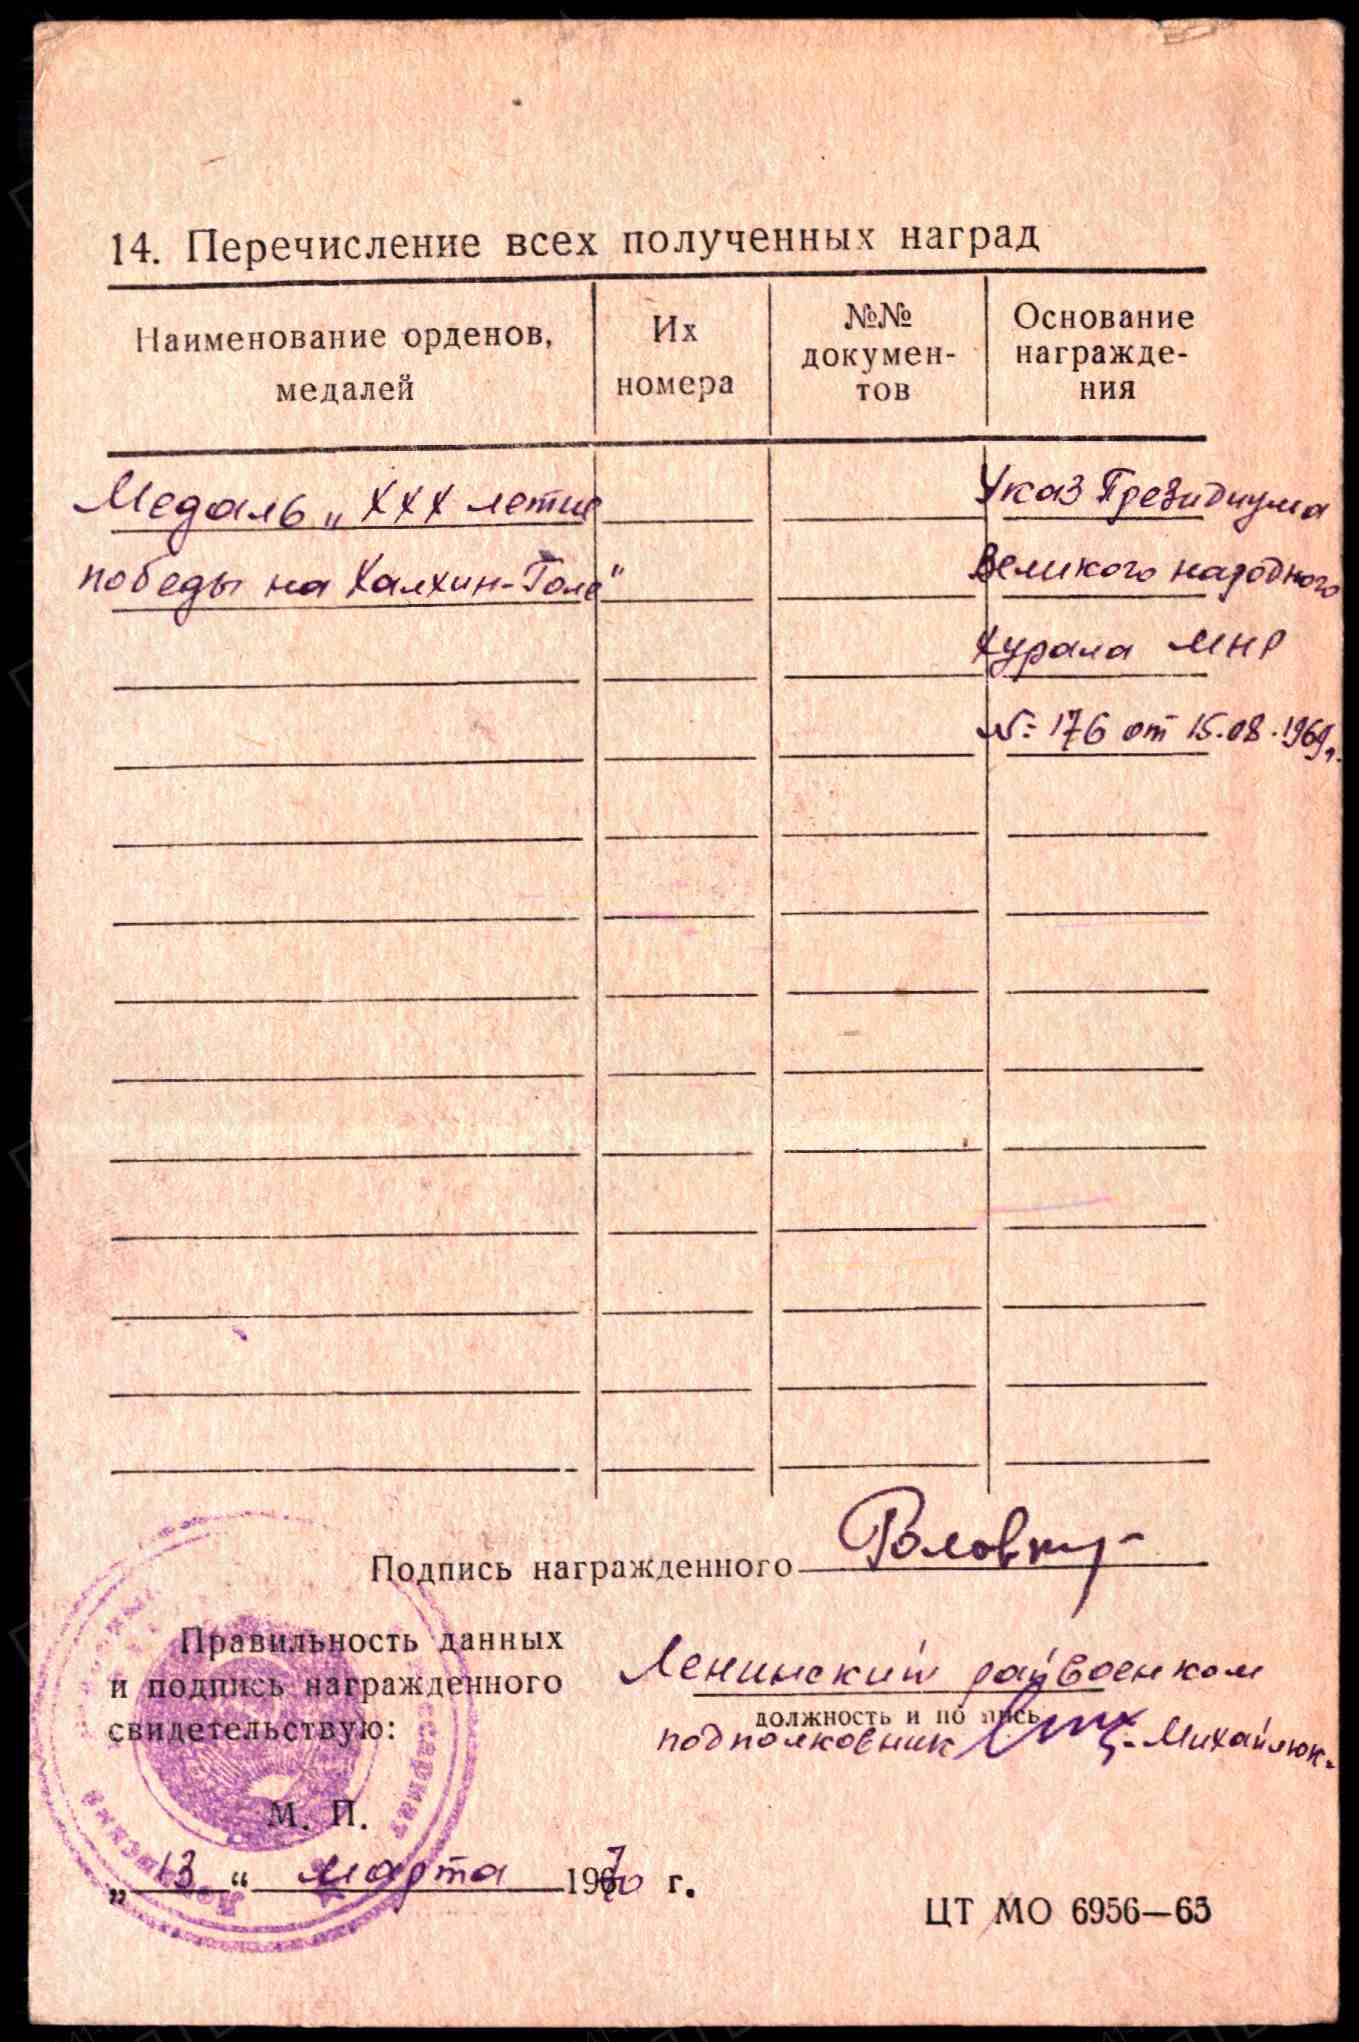 14. Перечисление всех полученных наград
Наименование орденов,
медалей
Их
номера
№№
докумен-
тов
Основание
награжде-
ния
Медаль „XXX летие
победы на Халхин-Голе"
Указ Президиума
Великого народного
Хурала МНР
№ 176 от 15.08.1969г.
Подпись награжденного
Правильность данных
и подпись награжденного
свидетельствую:
Ленинский райвоенком
должность и подпись
подполковник Михайлюк.
М. П.
„13“ марта 1970 г.
ЦТ МО 6956—63